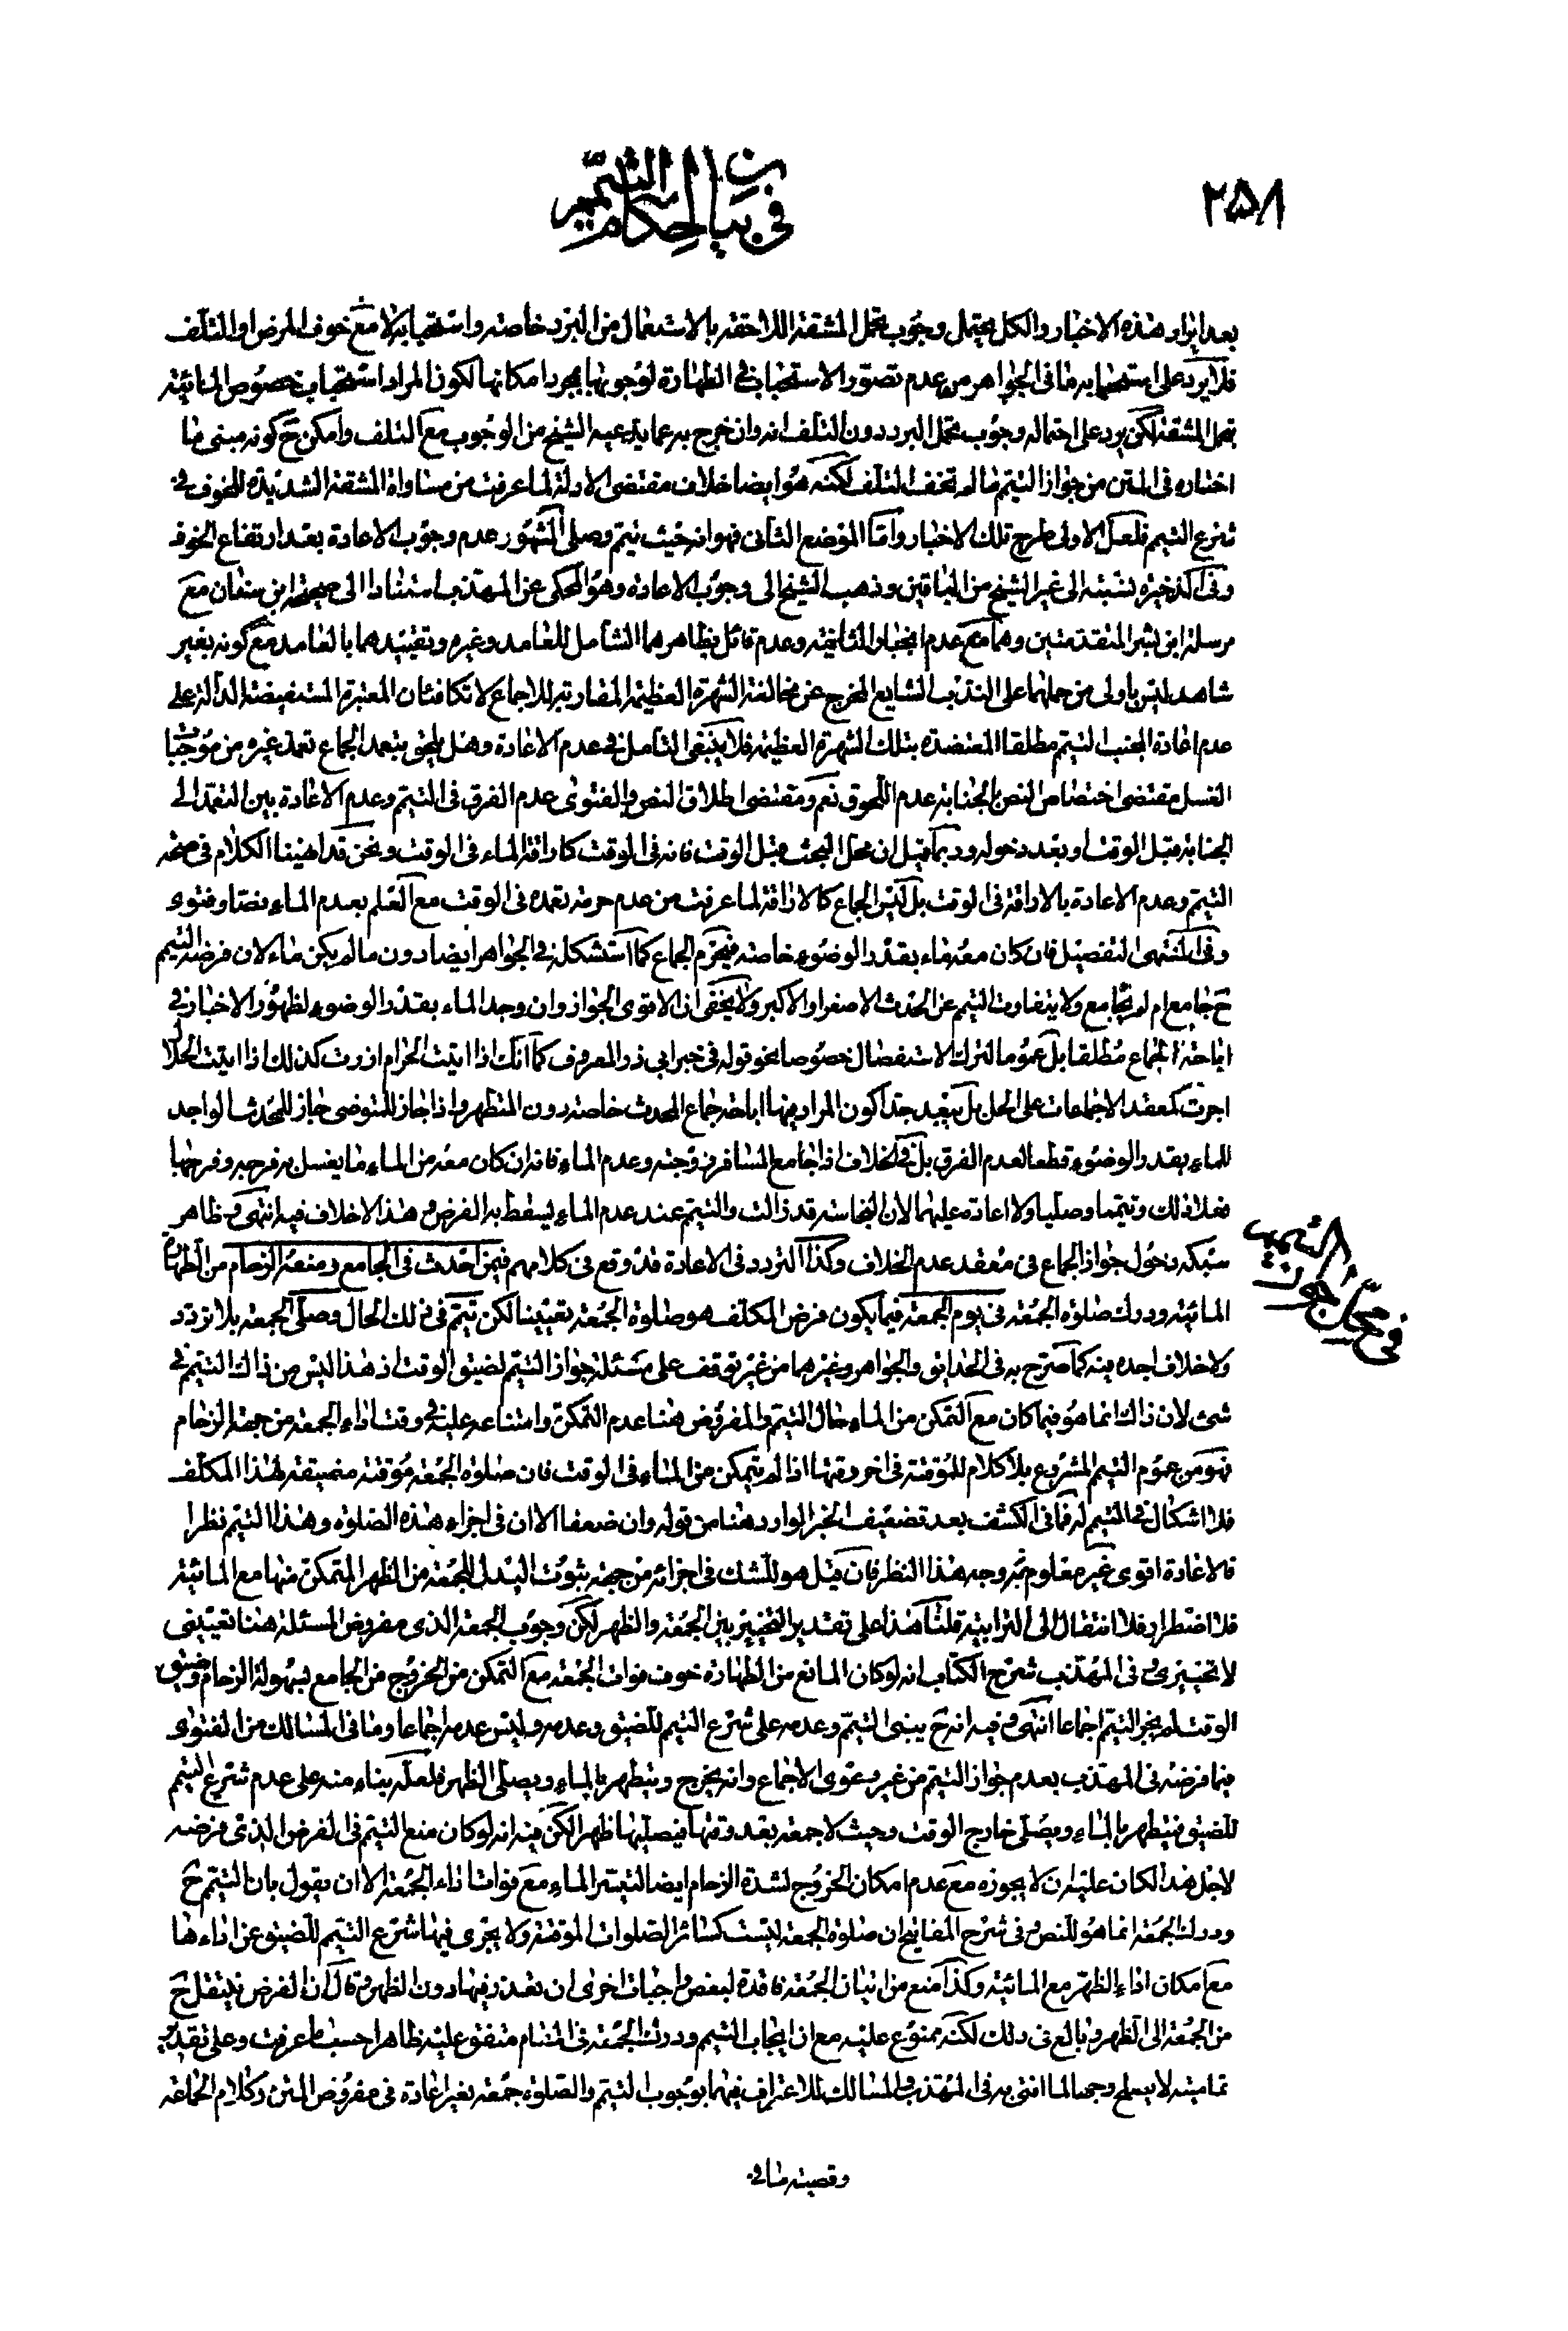 ٢٥٨
في بيان احكام التيمم
بعد ايراد هذه الاخبار والكل يحتمل وجوب تحمل المشقة اللاحقة بالاستعمال من البرد خاصة واستحبابه لا مع خوف المرض او التلف
فلا يرد على استحبابه ما في الجواهر من عدم تصوّر الاستحباب في الطهارة لوجوبها بمجرد امكانها لكون المراد استحباب خصوص المائية
بتحمل المشقة لكن يرد على احتماله وجوب تحمل البرد دون التلف انه وان خرج به عما يدعيه الشيخ من الوجوب مع التلف وامكن ح كونه مبنى ما
اختاره في المتن من جواز التيمم ما لم تخف التلف لكنه هو ايضا خلاف مقتضى الادلة لما عرفت من مساواة المشقة الشديدة للخوف في
شرع التيمم فلعل الاولى طرح تلك الاخبار وامّا الموضع الثاني فهو انه حيث تيمم وصلى المشهور عدم وجوب الاعادة بعد ارتفاع الخوف
وفي الذخيرة نسبته الى غير الشيخ من الباقين وذهب الشيخ الى وجوب الاعادة وهو المحكي عن المهذب استنادا الى صحيحة ابن سنان مع
مرسلة ابن بشير المتقدمتين وهما مع عدم الجبار الثانية وعدم قائل بظاهرهما الشامل للعامد وغيره وتقييدهما بالعامد مع كونه بغير
شاهد ليس باولى من حملهما على الندب الشايع المخرج عن مخالفة الشهرة العظيمة المقاربة للاجماع لا تكافئان المعتبرة المستفيضة الدالة على
عدم اعادة الجنب المتيمم مطلقا المعتضدة بتلك الشهرة العظيمة فلا ينبغي التأمل في عدم الاعادة وهل يلحق بتعمد الجماع تعمد غيره من موجبات
الغسل مقتضى اختصاص النص بالجنابة عدم اللحوق نعم ومقتضى اطلاق النص والفتوى عدم الفرق في التيمم وعدم الاعادة بين التعمد الى
الجنابة قبل الوقت او بعد دخوله وربما قيل ان محل البحث قبل الوقت فانه في الوقت كاراقة الماء في الوقت ونحن قد اهنينا الكلام في صحة
التيمم وعدم الاعادة بالاراقة في الوقت بل ليس الجماع كالاراقة لما عرفت من عدم حرمة تعمده في الوقت مع العلم بعدم الماء نصا وفتوى
وفي المنتهى التفصيل فان كان معه ماء بقدر الوضوء خاصة فيحرم الجماع كما استشكله في الجواهر ايضا دون ما لم يكن ماء لان فرضه التيمم
ح جامع ام لم يجامع ولا يتفاوت التيمم عن الحدث الاصغر او الاكبر ولا يخفى ان الاقوى الجواز وان وجد الماء بقدر الوضوء لظهور الاخبار في
اباحة الجماع مطلقا بل عموما لترك الاستفصال خصوصا نحو قوله في خبر ابي ذر المعروف كما انك اذا اتيت الحرام ازرت كذلك اذا اتيت الحلال
اجرت كمعقد الاجماعات على الحل بل يبعد جدا كون المراد منها اباحة جماع المحدث خاصة دون المتطهر واذا جاز للمتوضي جاز للمحدث الواجد
للماء بقدر الوضوء قطعا لعدم الفرق بل في الخلاف اذا جامع المسافر زوجته وعدم الماء فانه ان كان معه من الماء ما يغسل به فرجه وفرجها
فعلا ذلك وتيمما وصليا ولا اعادة عليهما لان النجاسة قد زالت والتيمم عند عدم الماء يسقط به الفرض وهذا لا خلاف فيه انتهى وظاهر
سبكه دخول جواز الجماع في معقد عدم الخلاف وكذا التردد في الاعادة قد وقع في كلامهم فيمن احدث في الجامع ومنعه الزحام من الطهارة
المائية ودرك صلوة الجمعة في يوم الجمعة فيما يكون فرض المكلف هو صلوة الجمعة تعيينا لكن تيمم في ذلك الحال وصلى الجمعة بلا تردد
ولا خلاف اجده فيه كما صرّح به في الحدائق والجواهر وغيرهما من غير توقف على مسئلة جواز التيمم لضيق الوقت اذ هذا ليس من ذاك التيمم في
شئ لان ذاك انما هو فيما كان مع التمكن من الماء حال التيمم والمفروض هنا عدم التمكن وامتناعه عليه في وقت اداء الجمعة من جهة الزحام
فهو من عموم التيمم المشروع بلا كلام للموقتة في اخر وقتها اذا لم يتمكن من الماء في الوقت فان صلوة الجمعة موقتة مضيقة لهذا المكلف
فلا اشكال في التيمم له فما في الكشف بعد تضعيف الخبر الوارد هنا من قوله وان ضعفا الا ان في اجزاء هذه الصلوة وهذا التيمم نظرا
فالاعادة اقوى غير معلوم وجه هذا النظر فان قيل هو للشك في اجزائه من جهة ثبوت البدل للجمعة من الظهر المتمكن منها مع المائية
فلا اضطرار فلا انتقال الى الترابية قلنا هذا على تقدير التخيير بين الجمعة والظهر لكن وجوب الجمعة الذي مفروض المسئلة هنا تعييني
لا تخييري وفي المهذب شرح الكتاب انه لو كان المانع من الطهارة خوف فوات الجمعة مع التمكن من الخروج من الجامع لسهولة الزحام وضيق
الوقت لم يجز التيمم اجماعا انتهى وفيه انه ح يبني التيمم وعدمه على شرع التيمم للضيق وعدمه وليس عدمه اجماعا وما في المسالك من الفتوى
فيما فرضه في المهذب بعدم جواز التيمم من غير دعوى الاجماع وانه يخرج ويتطهر بالماء ويصلي الظهر فلعله بناء منه على عدم شرع التيمم
للضيق فيتطهر بالماء ويصلي خارج الوقت وحيث لا جمعة بعد وقتها فيصليها ظهرا لكن فيه انه لو كان منع التيمم في الفرض الذي فرضه
لاجل هذا لكان عليه ان لا يجوزه مع عدم امكان الخروج لشدة الزحام ايضا لتيسر الماء مع فوات اداء الجمعة الا ان يقول بان التيمم ح
ودرك الجمعة انما هو للنص وفي شرح المفاتيح ان صلوة الجمعة ليست كسائر الصلوات الموقتة ولا يجري فيها شرع التيمم للضيق عن اداءها
مع امكان اداء الظهر مع المائية وكذا منع من اتيان الجمعة فاقدة لبعض واجبات اخرى ان تعذر فيها دون الظهر وقال ان الفرض ينتقل ح
من الجمعة الى الظهر وبالغ في ذلك لكنه ممنوع عليه مع ان ايجاب التيمم ودرك الجمعة في المقام متفق عليه ظاهرا حسب ما عرفت وعلى تقدير
تماميته لا يصلح وجها لما افتى به في المهذب والمسالك للاعتراف فيهما بوجوب التيمم والصلوة جمعة بغير اعادة في مفروض المتن وكلام الجماعة
في محل جواز التيمم
وقضية ما في